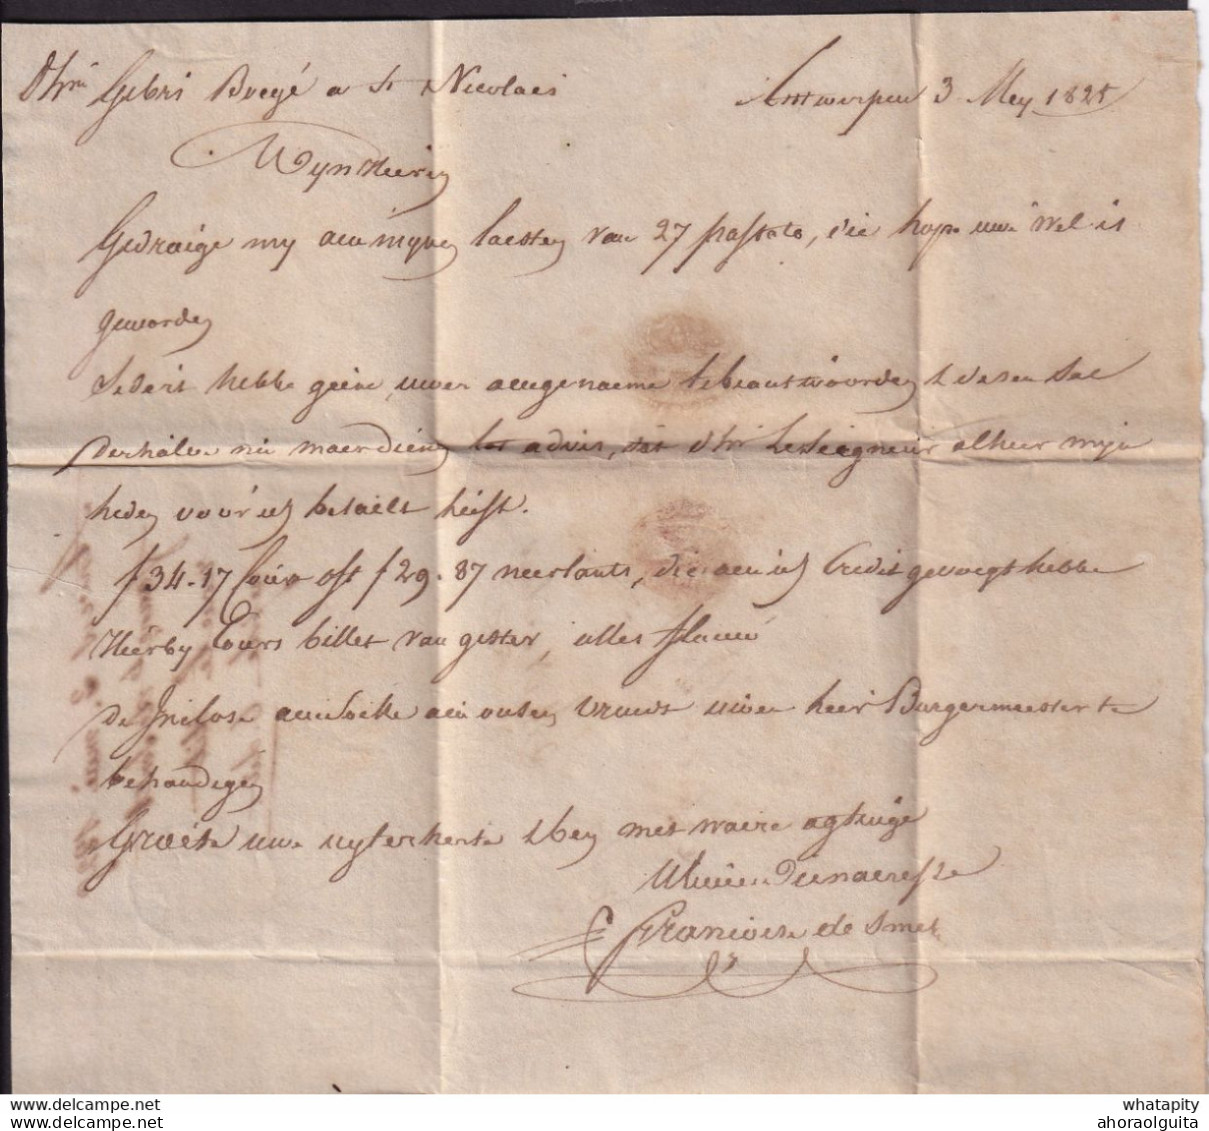 Gebrs Boeyé a St Nicolaes
Antwerpen 3 Mey 1825
Mynheeren
Gedraige my aen mynen laesten van 27 passato, die hope uw wel is
geworden
Sedert hebbe geene uwer aengenaeme te beantwoorden & desen sal
derhalve nu maer dienen tot advis, dat dhr Leseigneur alhier myn
heden voor uE betaelt heeft.
f 34-17 Cour oft f 29.87 neerlants, die aen uE Credit gevoegt hebbe
Hierby Cours billet van gister, alles flauw
De Inclose aen uwen heer Burgermeester te
behandigen
Groete uw uyterherte & ben met waere agtinge
Uwen Dienaeresse
Francoise de Smet
whatapity
ahoraolguita